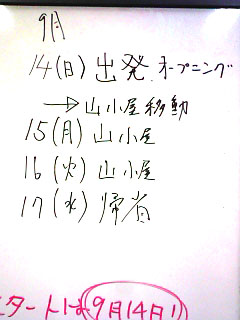 9月
14(日) 出発 オープニング
→山小屋移動
15(月) 山小屋
16(火) 山小屋
17(水) 帰省
タートは9月14日!